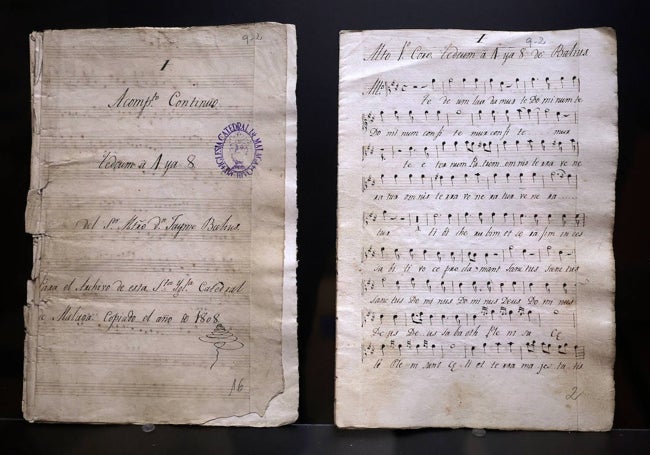 9-2
1
Acompto. Continuo
Tedeum à 1 ya 8
del Sr. Mtro. Dn. Jayme Balius
Para el Archivo de esta Sta. Ygla. Catedral
de Malaga. Copiado el año de 1808
16
IGLESIA CATEDRAL DE MALAGA
1
9-2
Alto 1º Coro Tedeum à 1 ya 8 de Balius
Allo.
Te de um lau da mus te Do mi num te
Do mi num confi te mur confi te mur
te e ter num Patrem om nis te rra ve ne
ra tur om nis te rra ve ne ra tur ve ne ra
tur ti bi che ru bim et se ra fim in ces
sa bi li vo ce pro cla mant Sanc tus Sanc tus
Sanc tus Do mi nus Do mi nus Deus Do mi nus
De us De us sa ba oth Ple ni su Cę
li Ple ni sunt Cę li et te rra ma jes ta tis
2